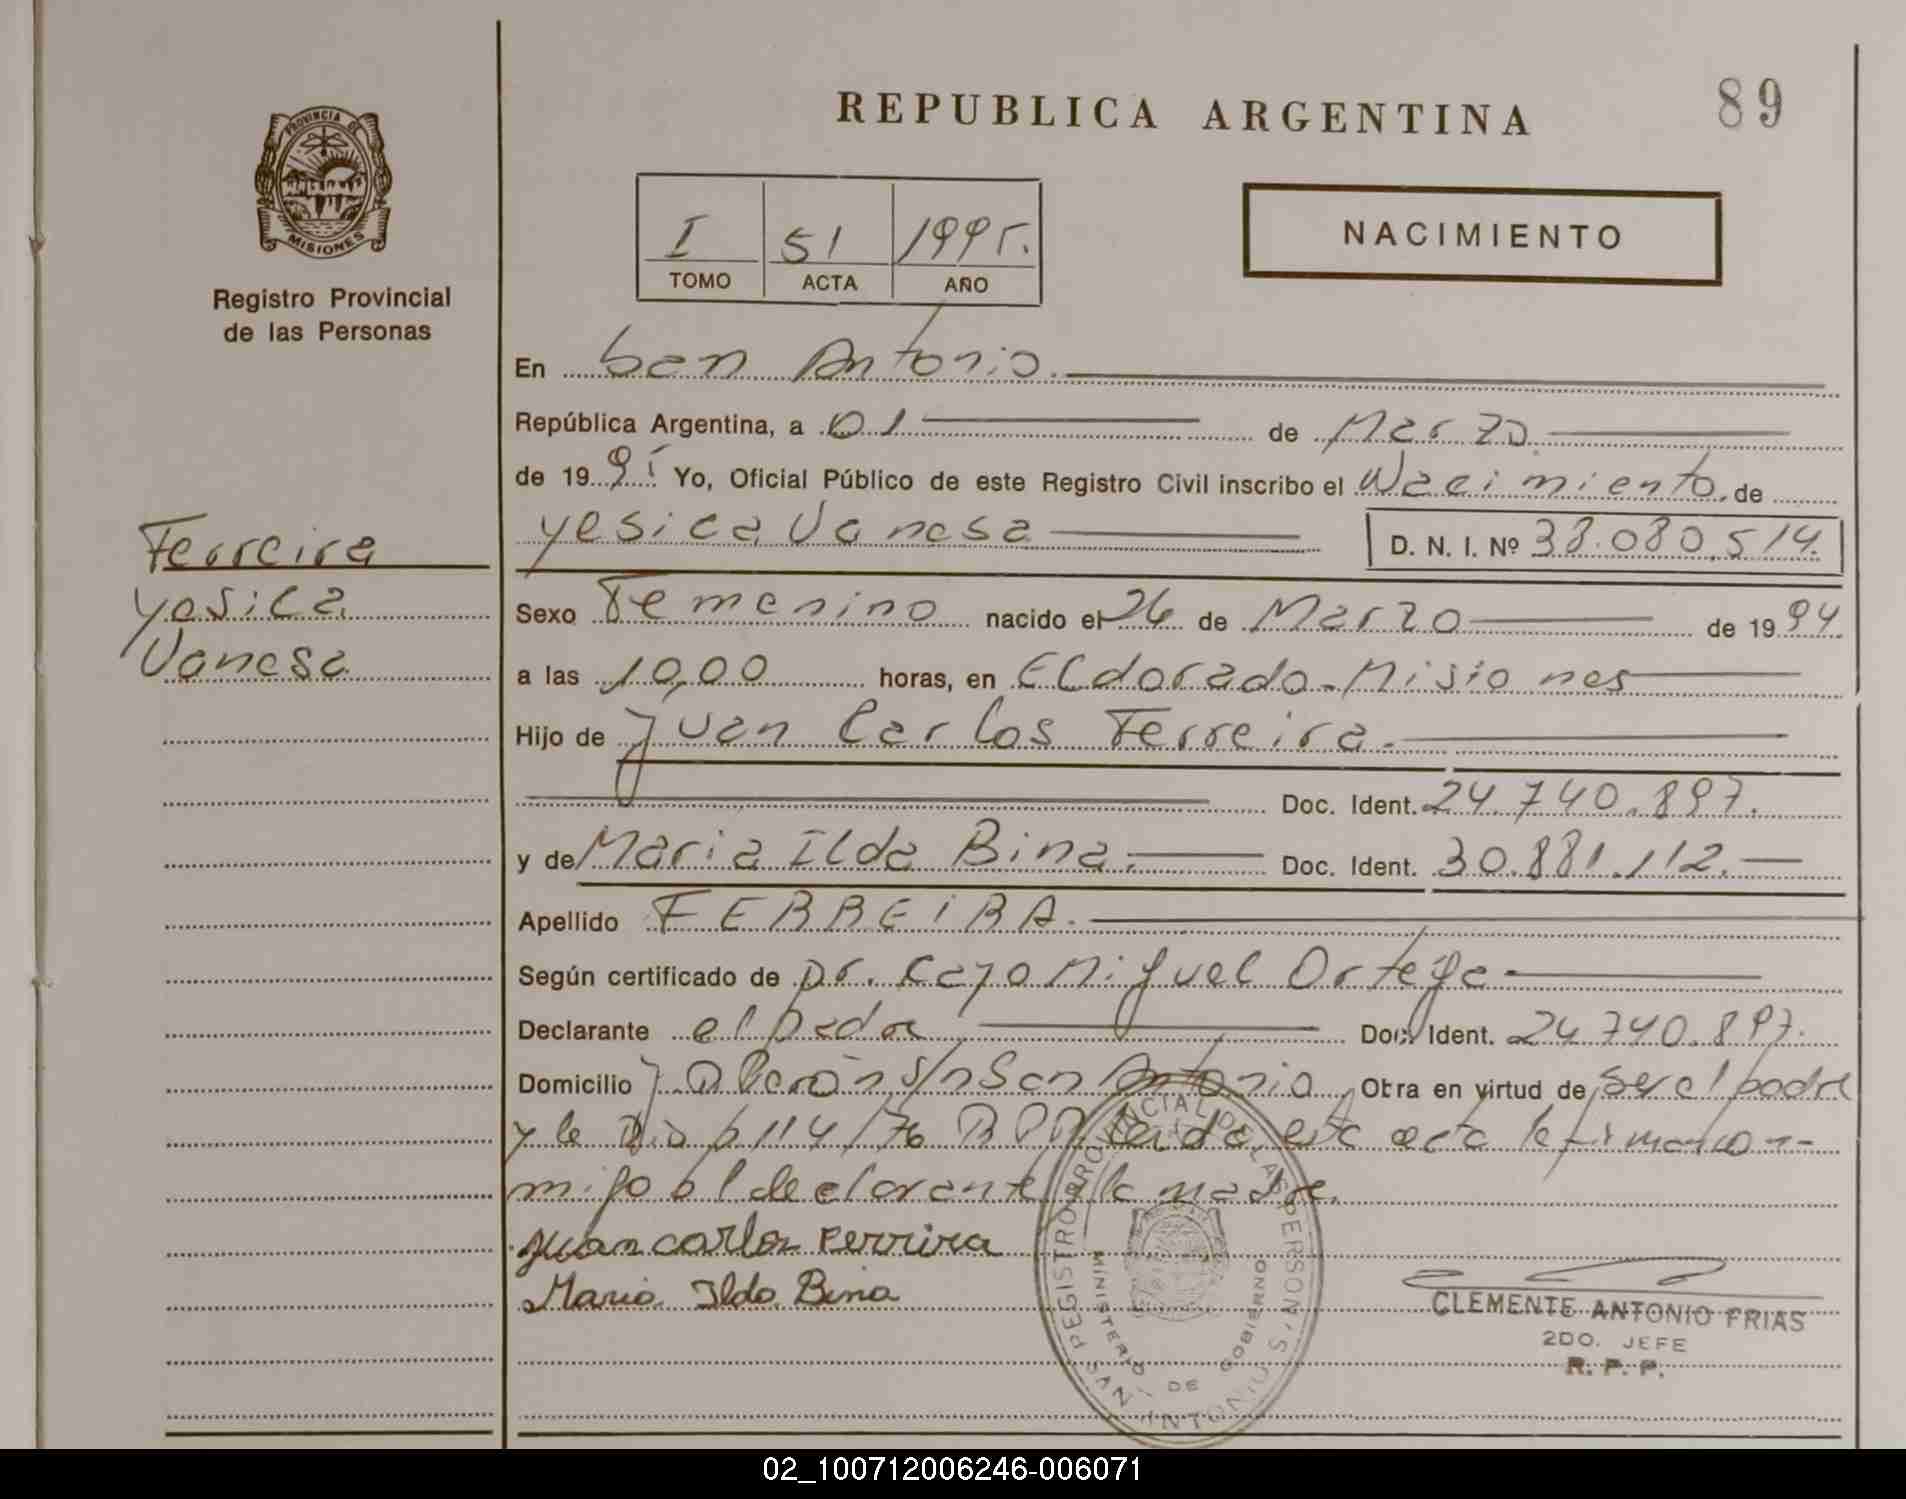 REPUBLICA ARGENTINA
89
PROVINCIA DE
MISIONES
Registro Provincial
de las Personas
I 51 1995.
TOMO ACTA AÑO
NACIMIENTO
En San Antonio.
República Argentina, a 01 de Marzo
de 1995 Yo, Oficial Público de este Registro Civil inscribo el Nacimiento de
Yesica Vanesa D. N. I. Nº 38.080.514.
Ferreira
Yesica
Vanesa
Sexo Femenino nacido el 26 de Marzo de 1994.
a las 10,00 horas, en Eldorado-Misiones
Hijo de Juan Carlos Ferreira.
Doc. Ident. 24.740.897.
y de Maria Ilda Bina. Doc. Ident. 30.881.112.
Apellido FERREIRA.
Según certificado de Dr. Cayo Miguel Ortega
Declarante el padre Doc. Ident. 24.740.897.
Domicilio J. D. Perón S/n San Antonio Obra en virtud de ser el padre
y la Dis p 114/76 R P P leida esta acta la firma con-
migo el declarante y la madre.
Juan carlos Ferrira
Maria Ilda Bina
REGISTRO PROVINCIAL DE LAS PERSONAS
MINISTERIO DE GOBIERNO
SAN ANTONIO
CLEMENTE ANTONIO FRIAS
2DO. JEFE
R. P. P.
02_100712006246-006071